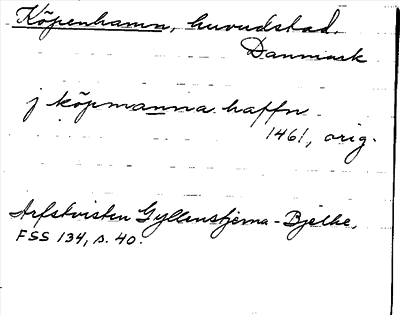 Köpenhamn, huvudstad.
Danmark
j köpmanna haffn
1461, orig.
Arfstvisten Gyllenstjerna - Bjelke,
FSS 134, s. 40.